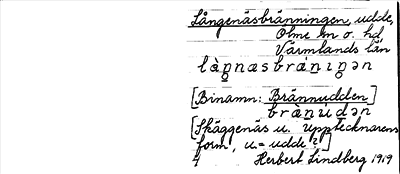 Långenäsbränningen, udde,
Ölme sn o. hd
Värmlands län
[Binamn: Brännudden]
[Skäggenäs u. Upptecknarens
form, u. = udde?]
4 Herbert Lindberg 1919